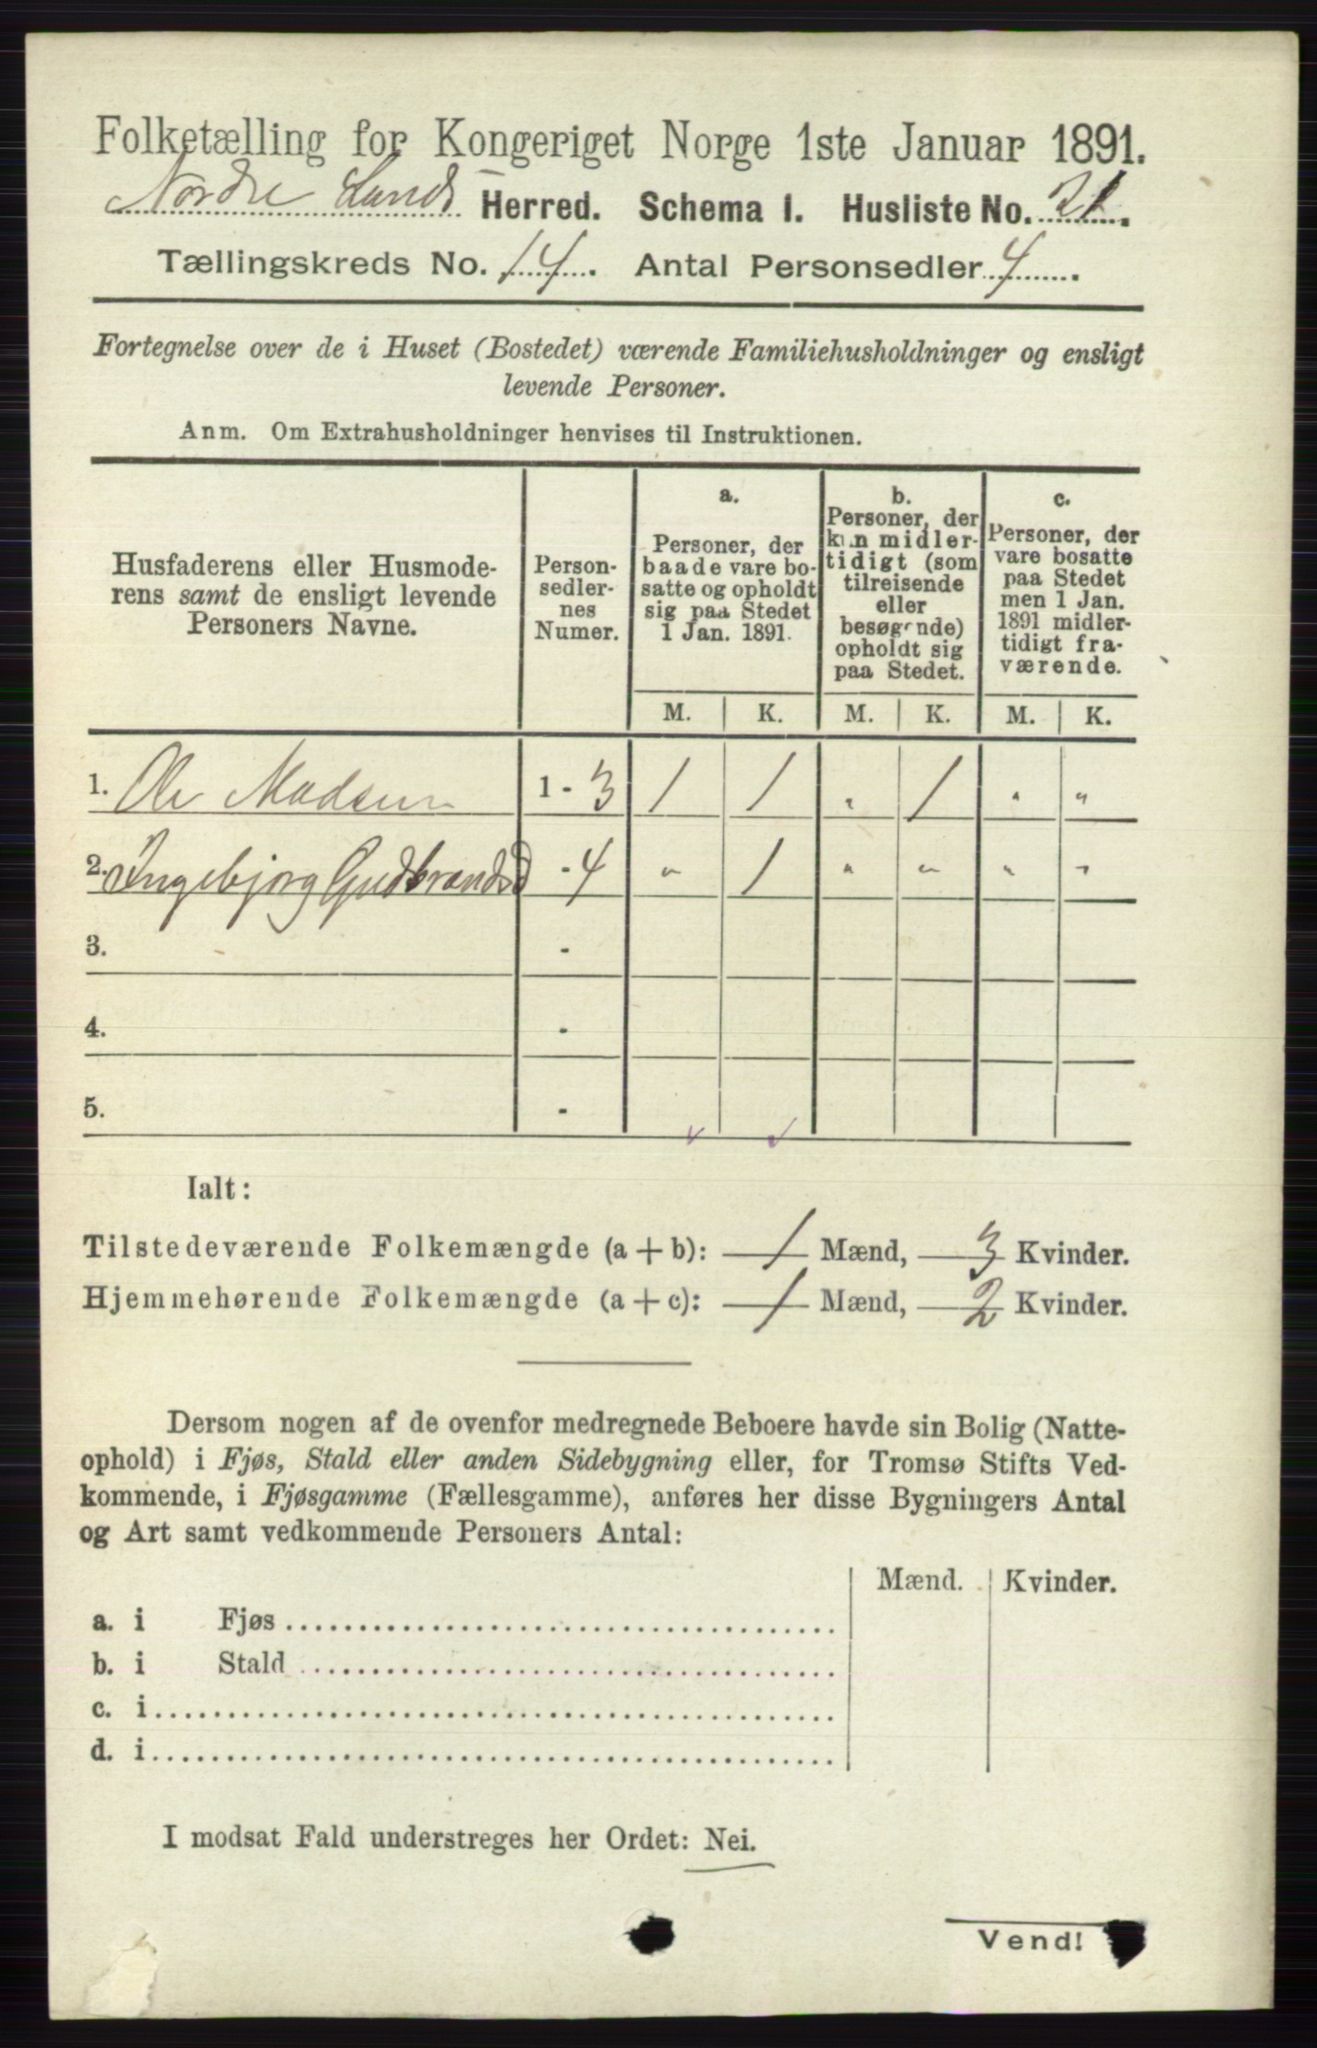 Folketælling for Kongeriget Norge 1ste Januar 1891.
Nordre Lands Herred. Schema I. Husliste No. 21.
Tællingskreds No. 14. Antal Personsedler 4.
Fortegnelse over de i Huset (Bostedet) værende Familiehusholdninger og ensligt
levende Personer.
Anm. Om Extrahusholdninger henvises til Instruktionen.
Husfaderens eller Husmode-
rens samt de ensligt levende
Personers Navne.
Person-
sedler-
nes
Numer.
a.
Personer, der
baade vare bo-
satte og opholdt
sig paa Stedet
1 Jan. 1891.
b.
Personer, der
kun midler-
tidigt (som
tilreisende
eller
besøgende)
opholdt sig
paa Stedet.
c.
Personer, der
vare bosatte
paa Stedet
men 1 Jan.
1891 midler-
tidigt fra-
værende.
M. K. M. K. M. K.
1. Ole Madsen 1 - 3 1 1 " 1 " "
2. Ingebjørg Gudbrandsd - 4 " 1 " " " "
3. -
4. -
5. -
Ialt:
Tilstedeværende Folkemængde (a + b): 1 Mænd, 3 Kvinder.
Hjemmehørende Folkemængde (a + c): 1 Mænd, 2 Kvinder.
Dersom nogen af de ovenfor medregnede Beboere havde sin Bolig (Natte-
ophold) i Fjøs, Stald eller anden Sidebygning eller, for Tromsø Stifts Ved-
kommende, i Fjøsgamme (Fællesgamme), anføres her disse Bygningers Antal
og Art samt vedkommende Personers Antal:
Mænd. Kvinder.
a. i Fjøs
b. i Stald
c. i
d. i
I modsat Fald understreges her Ordet: Nei.
Vend!